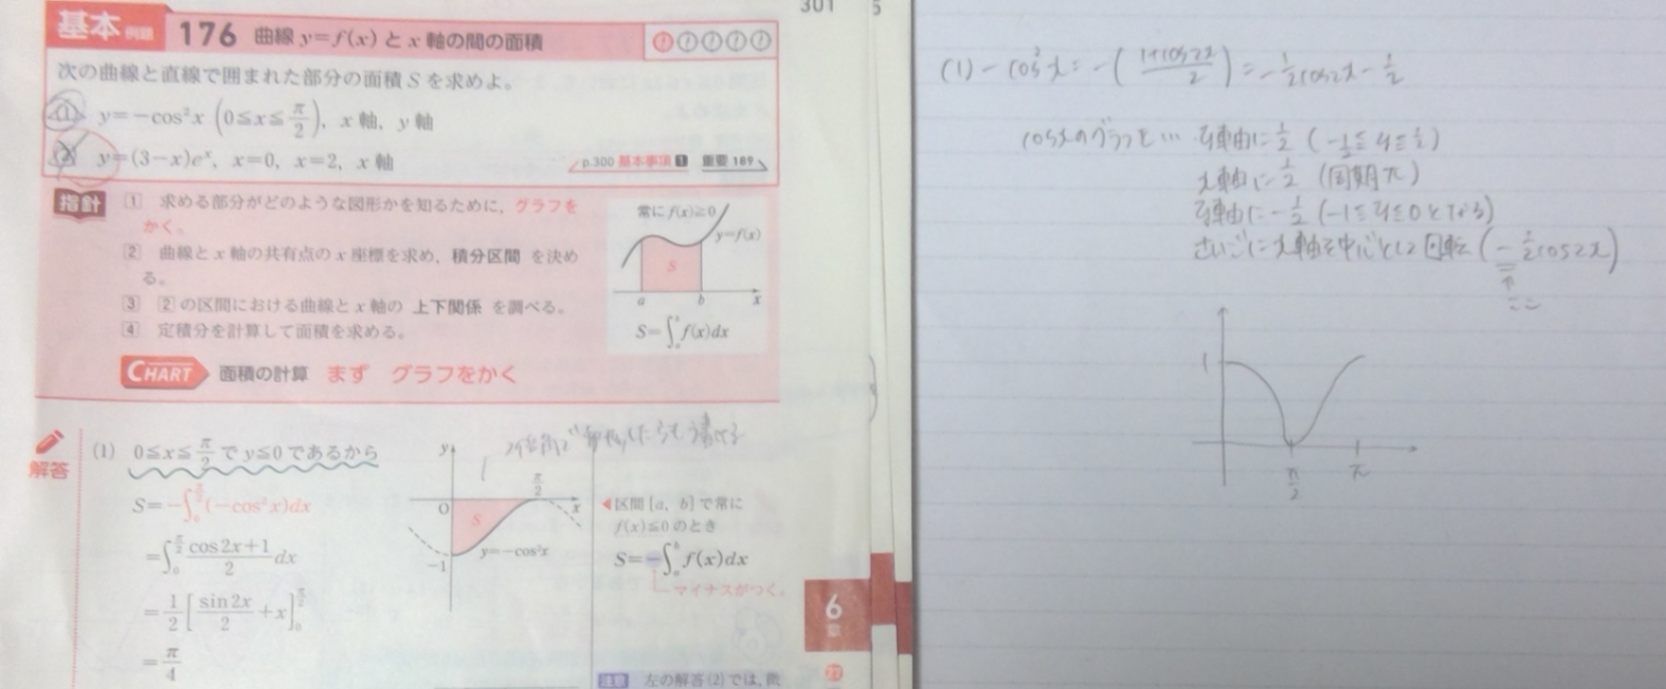 301 5
基本 例題 176 曲線 y=f(x) と x 軸の間の面積
次の曲線と直線で囲まれた部分の面積 S を求めよ。
(1) y=−cos²x (0≦x≦π/2), x 軸, y 軸
(2) y=(3−x)eˣ, x=0, x=2, x 軸
p.300 基本事項 1 重要 189
指針 1 求める部分がどのような図形かを知るために, グラフを
かく。
2 曲線と x 軸の共有点の x 座標を求め, 積分区間 を決め
る。
3 2 の区間における曲線と x 軸の 上下関係 を調べる。
4 定積分を計算して面積を求める。
常に f(x)≧0
y=f(x)
S
a b x
S=∫ₐᵇ f(x)dx
CHART 面積の計算 まず グラフをかく
解答
(1) 0≦x≦π/2 で y≦0 であるから
S=−∫₀^{π/2}(−cos²x)dx
=∫₀^{π/2} (cos2x+1)/2 dx
=1/2[sin2x/2+x]₀^{π/2}
=π/4
y
O π/2 x
S
−1
y=−cos²x
◀区間 [a, b] で常に
f(x)≦0 のとき
S=−∫ₐᵇ f(x)dx
マイナスがつく。
6
章
注意 左の解答(2)では, 微
(1) −cos²x = −((1+cos2x)/2) = −1/2cos2x − 1/2
cosxのグラフを… y軸に 1/2 (−1/2≦y≦1/2)
x軸に 1/2 (周期π)
y軸に −1/2 (−1≦y≦0となる)
さいごにx軸を中心として回転 (−1/2cos2x)
↑
1
π/2 π